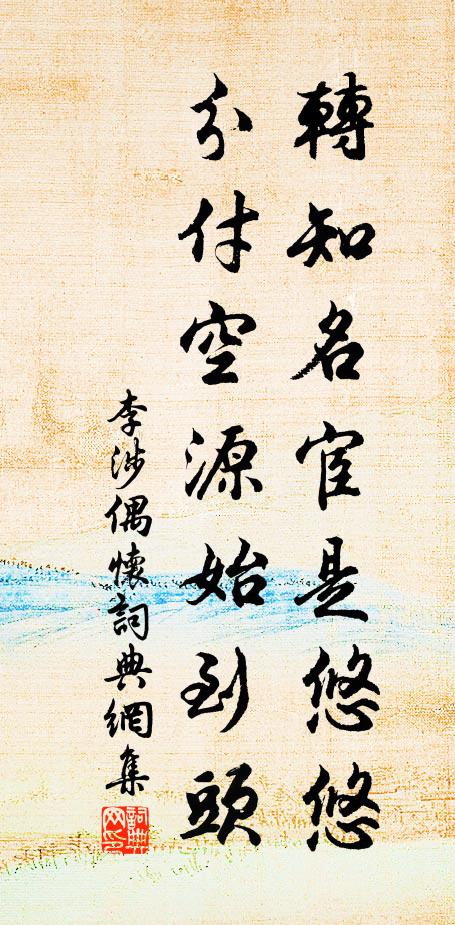 轉知名宦是悠悠
分付空源始到頭
李涉偶懷詞典網集
詞典網印